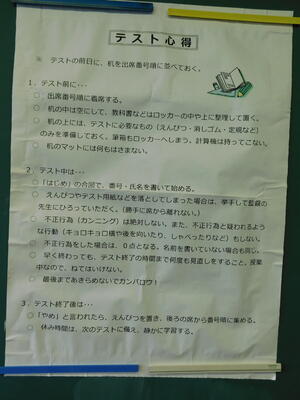 テスト心得
※ テストの前日に、机を出席番号順に並べておく。
1．テスト前に…
○ 出席番号順に着席する。
○ 机の中は空にして、教科書などはロッカーの中や上に整理して置く。
○ 机の上には、テストに必要なもの（えんぴつ・消しゴム・定規など）
のみを準備しておく。筆箱もロッカーへしまう。計算機は持ってこない。
○ 机のマットには何もはさまない。
2．テスト中は…
○ 「はじめ」の合図で、番号・氏名を書いて始める。
○ えんぴつやテスト用紙などを落としてしまった場合は、挙手して監督の
先生にひろっていただく。（勝手に席から離れない。）
○ 不正行為（カンニング）は絶対しない。また、不正行為と疑われるよう
な行動（キョロキョロ横や後を向いたり、しゃべったりなど）もしない。
○ 不正行為をした場合は、０点となる。名前を書いていない場合も同じ。
○ 早く終わっても、テスト終了の時間まで何度も見直しをすること。授業
中なので、ねてはいけない。
○ 最後まであきらめないでガンバロウ！
3．テスト終了後は…
○ 「やめ」と言われたら、えんぴつを置き、後ろの席から番号順に集める。
○ 休み時間は、次のテストに備え、静かに学習する。